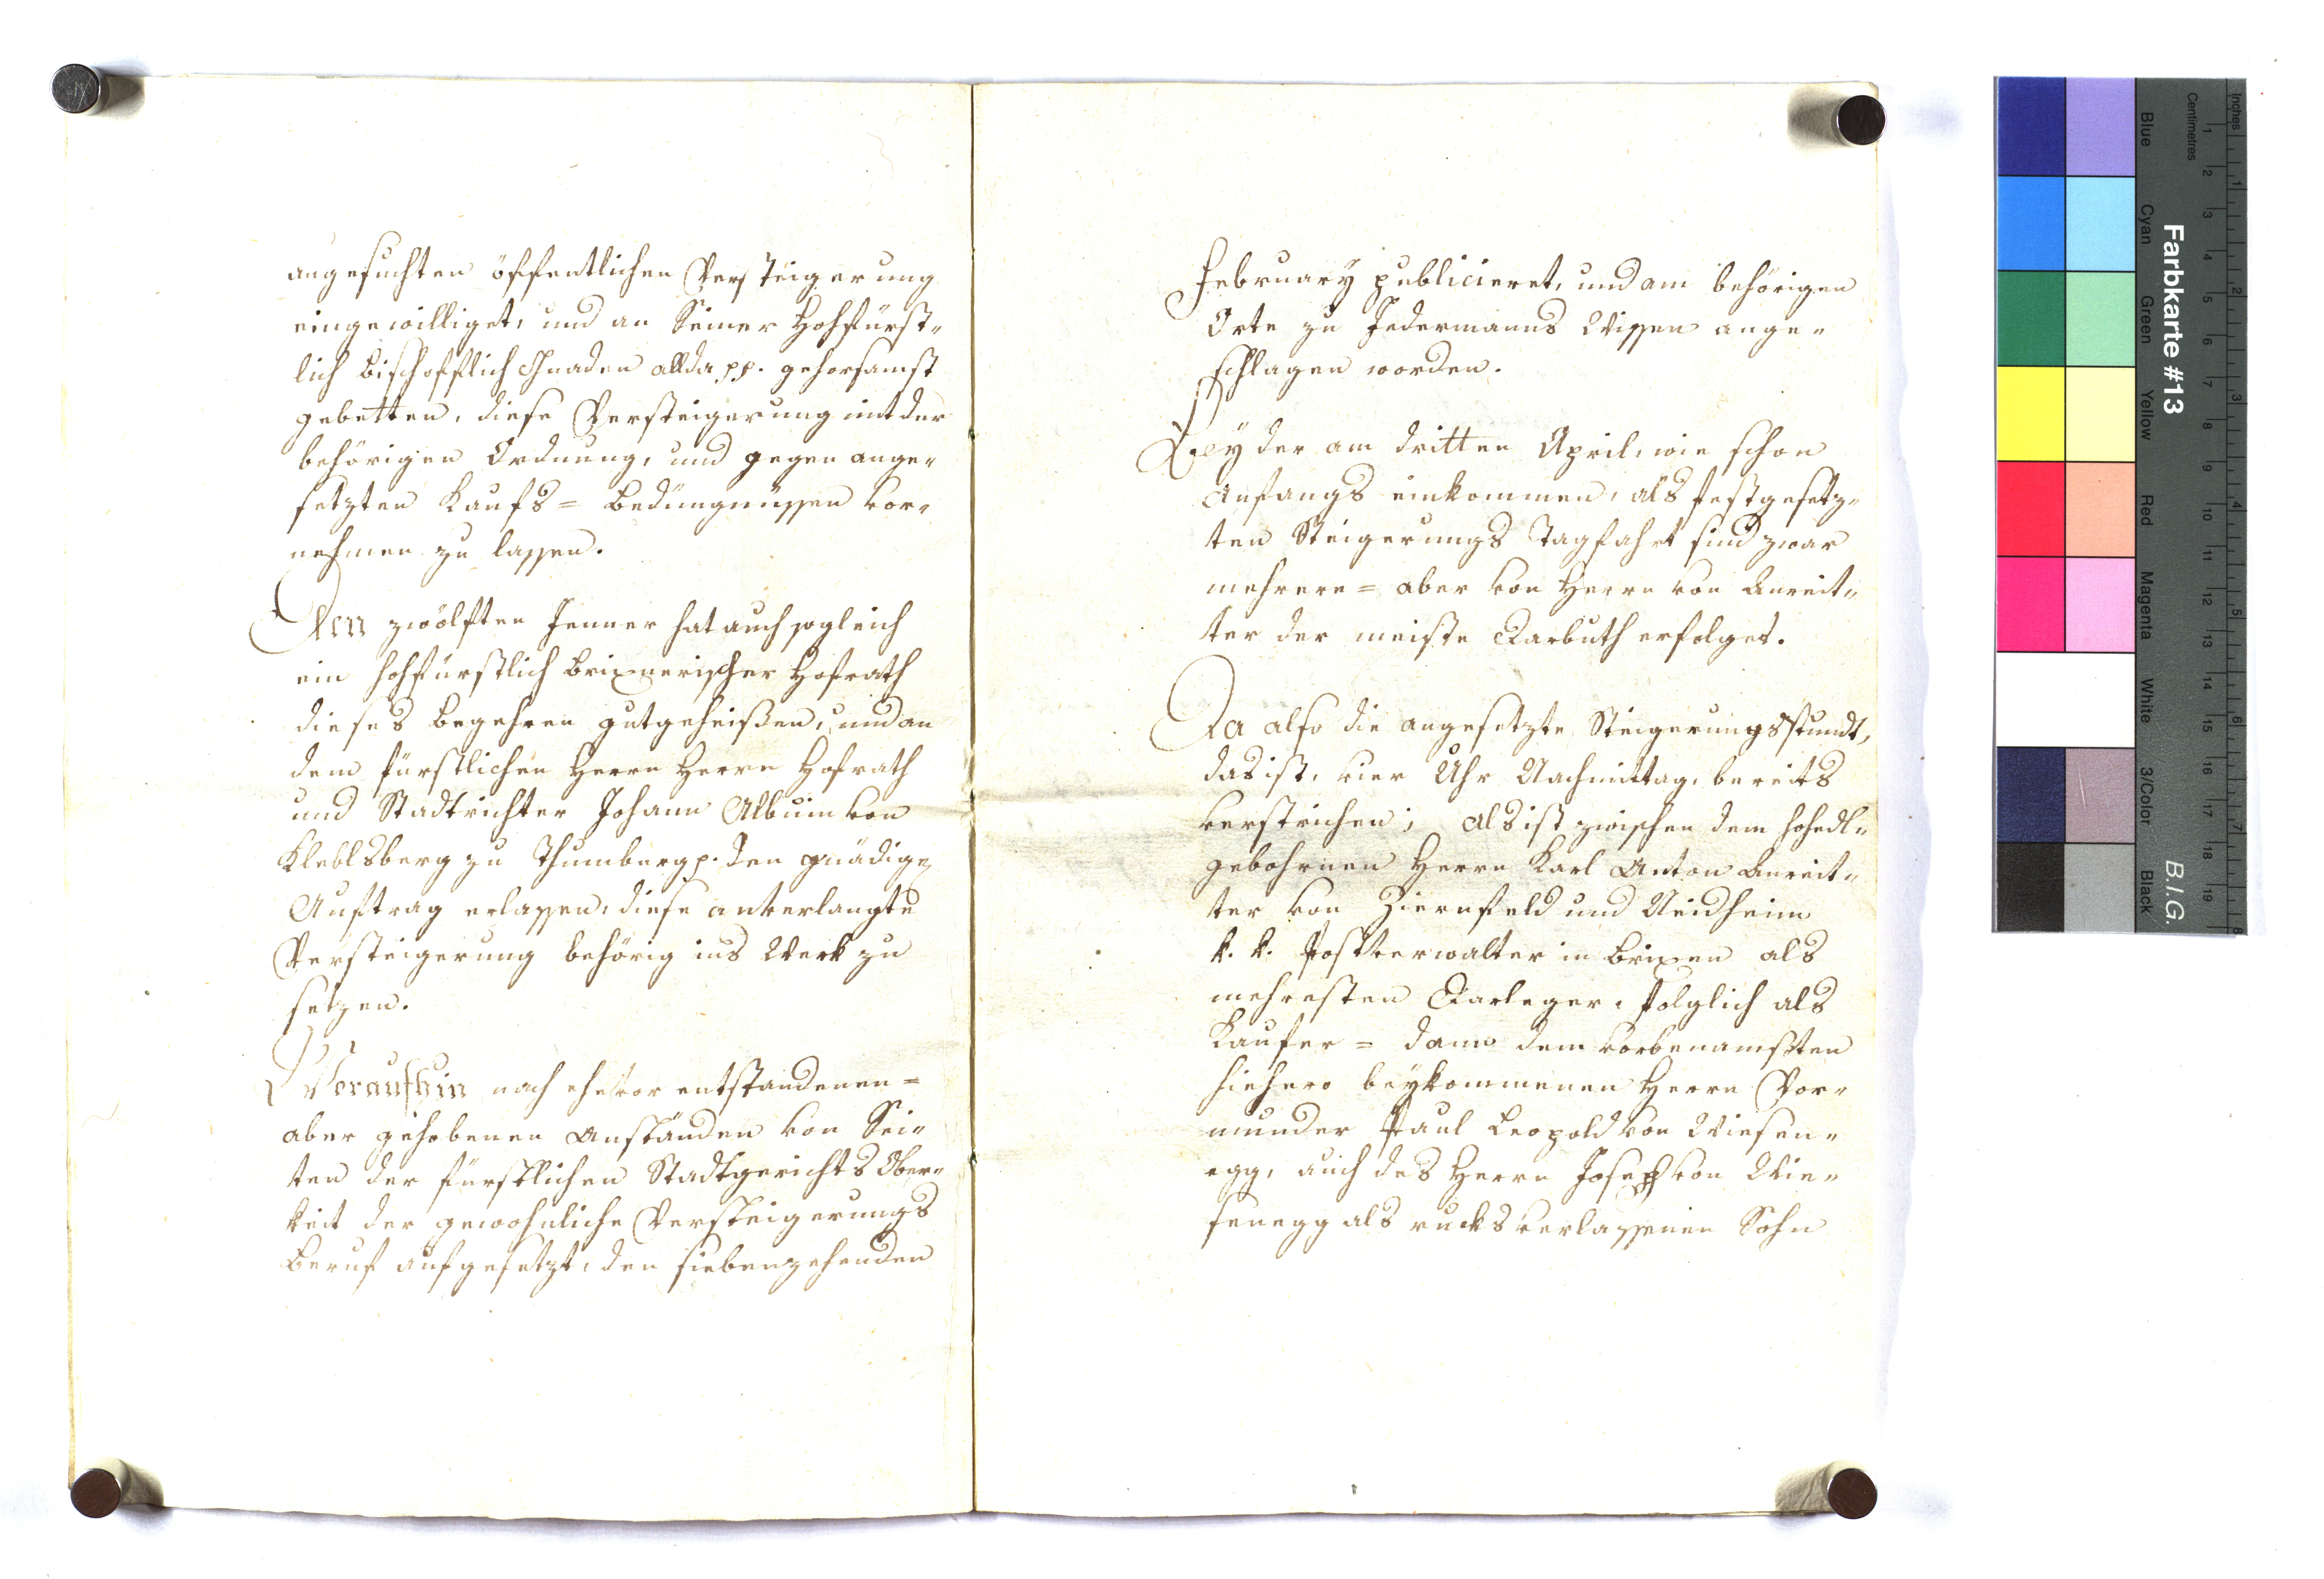 angesuchten öffentlichen Versteigerung
eingewilliget, und an Seiner Hochfürst-
lich bischofflich Gnaden allda pp. gehorsamst
gebetten, diese Versteigerung mit der
behörigen Ordnung, und gegen ange-
setzten Kaufs = bedüngnüssen vor-
nehmen zu lassen.
Den zwölften Jenner hat auch sogleich
ein hochfürstlich brixnerischer Hofrath
dieses begehren gutgeheißen, und an
dem fürstlichen Herrn Herrn Hofrath
und Stadtrichter Johann Albuin von
Kleblsberg zu Thumburg p. den gnädigen
Auftrag erlassen, diese anverlangte
Versteigerung behörig ins Werk zu
setzen.
Woraufhin nach ehevor entstandenen =
aber gehobenen Anständen von Sei-
ten der fürstlichen Stadtgerichts Ober-
keit der gewohnliche Versteigerungs
Beruf aufgesetzt, den siebenzehenden
February publicieret, und am behörigen
Orte zu Jedermanns Wissen ange-
schlagen worden.
Bey der am dritten April, wie schon
Anfangs einkommen, als festgesetz-
ten Steigerungs Tagfahrt sind zwar
mehrere = aber von Herrn von Anreit-
ter der meiste Darbuth erfolget.
Da also die angesetzte Steigerungsstundt,
das ist, vier Uhr Nachmittag, bereits
verstrichen; als ist zwischen dem hochedl-
gebohrnen Herrn Karl Anton Anreit-
ter von Ziernfeld und Neidheim
k. k. Postverwalter in Brixen als
mehresten Darleger, folglich als
Kaufer = dann dem vorbenamsten
hiehero beykommenen Herrn Vor-
munder Paul Leopold von Wiesen-
egg, auch des Herrn Joseph von Wie-
senegg als rucksverlassenen Sohn
Farbkarte #13
B.I.G.
Inches
Centimetres
1 2 3 4 5 6 7 8 9 10 11 12 13 14 15 16 17 18 19
1 2 3 4 5 6 7 8
Blue
Cyan
Green
Yellow
Red
Magenta
White
3/Color
Black